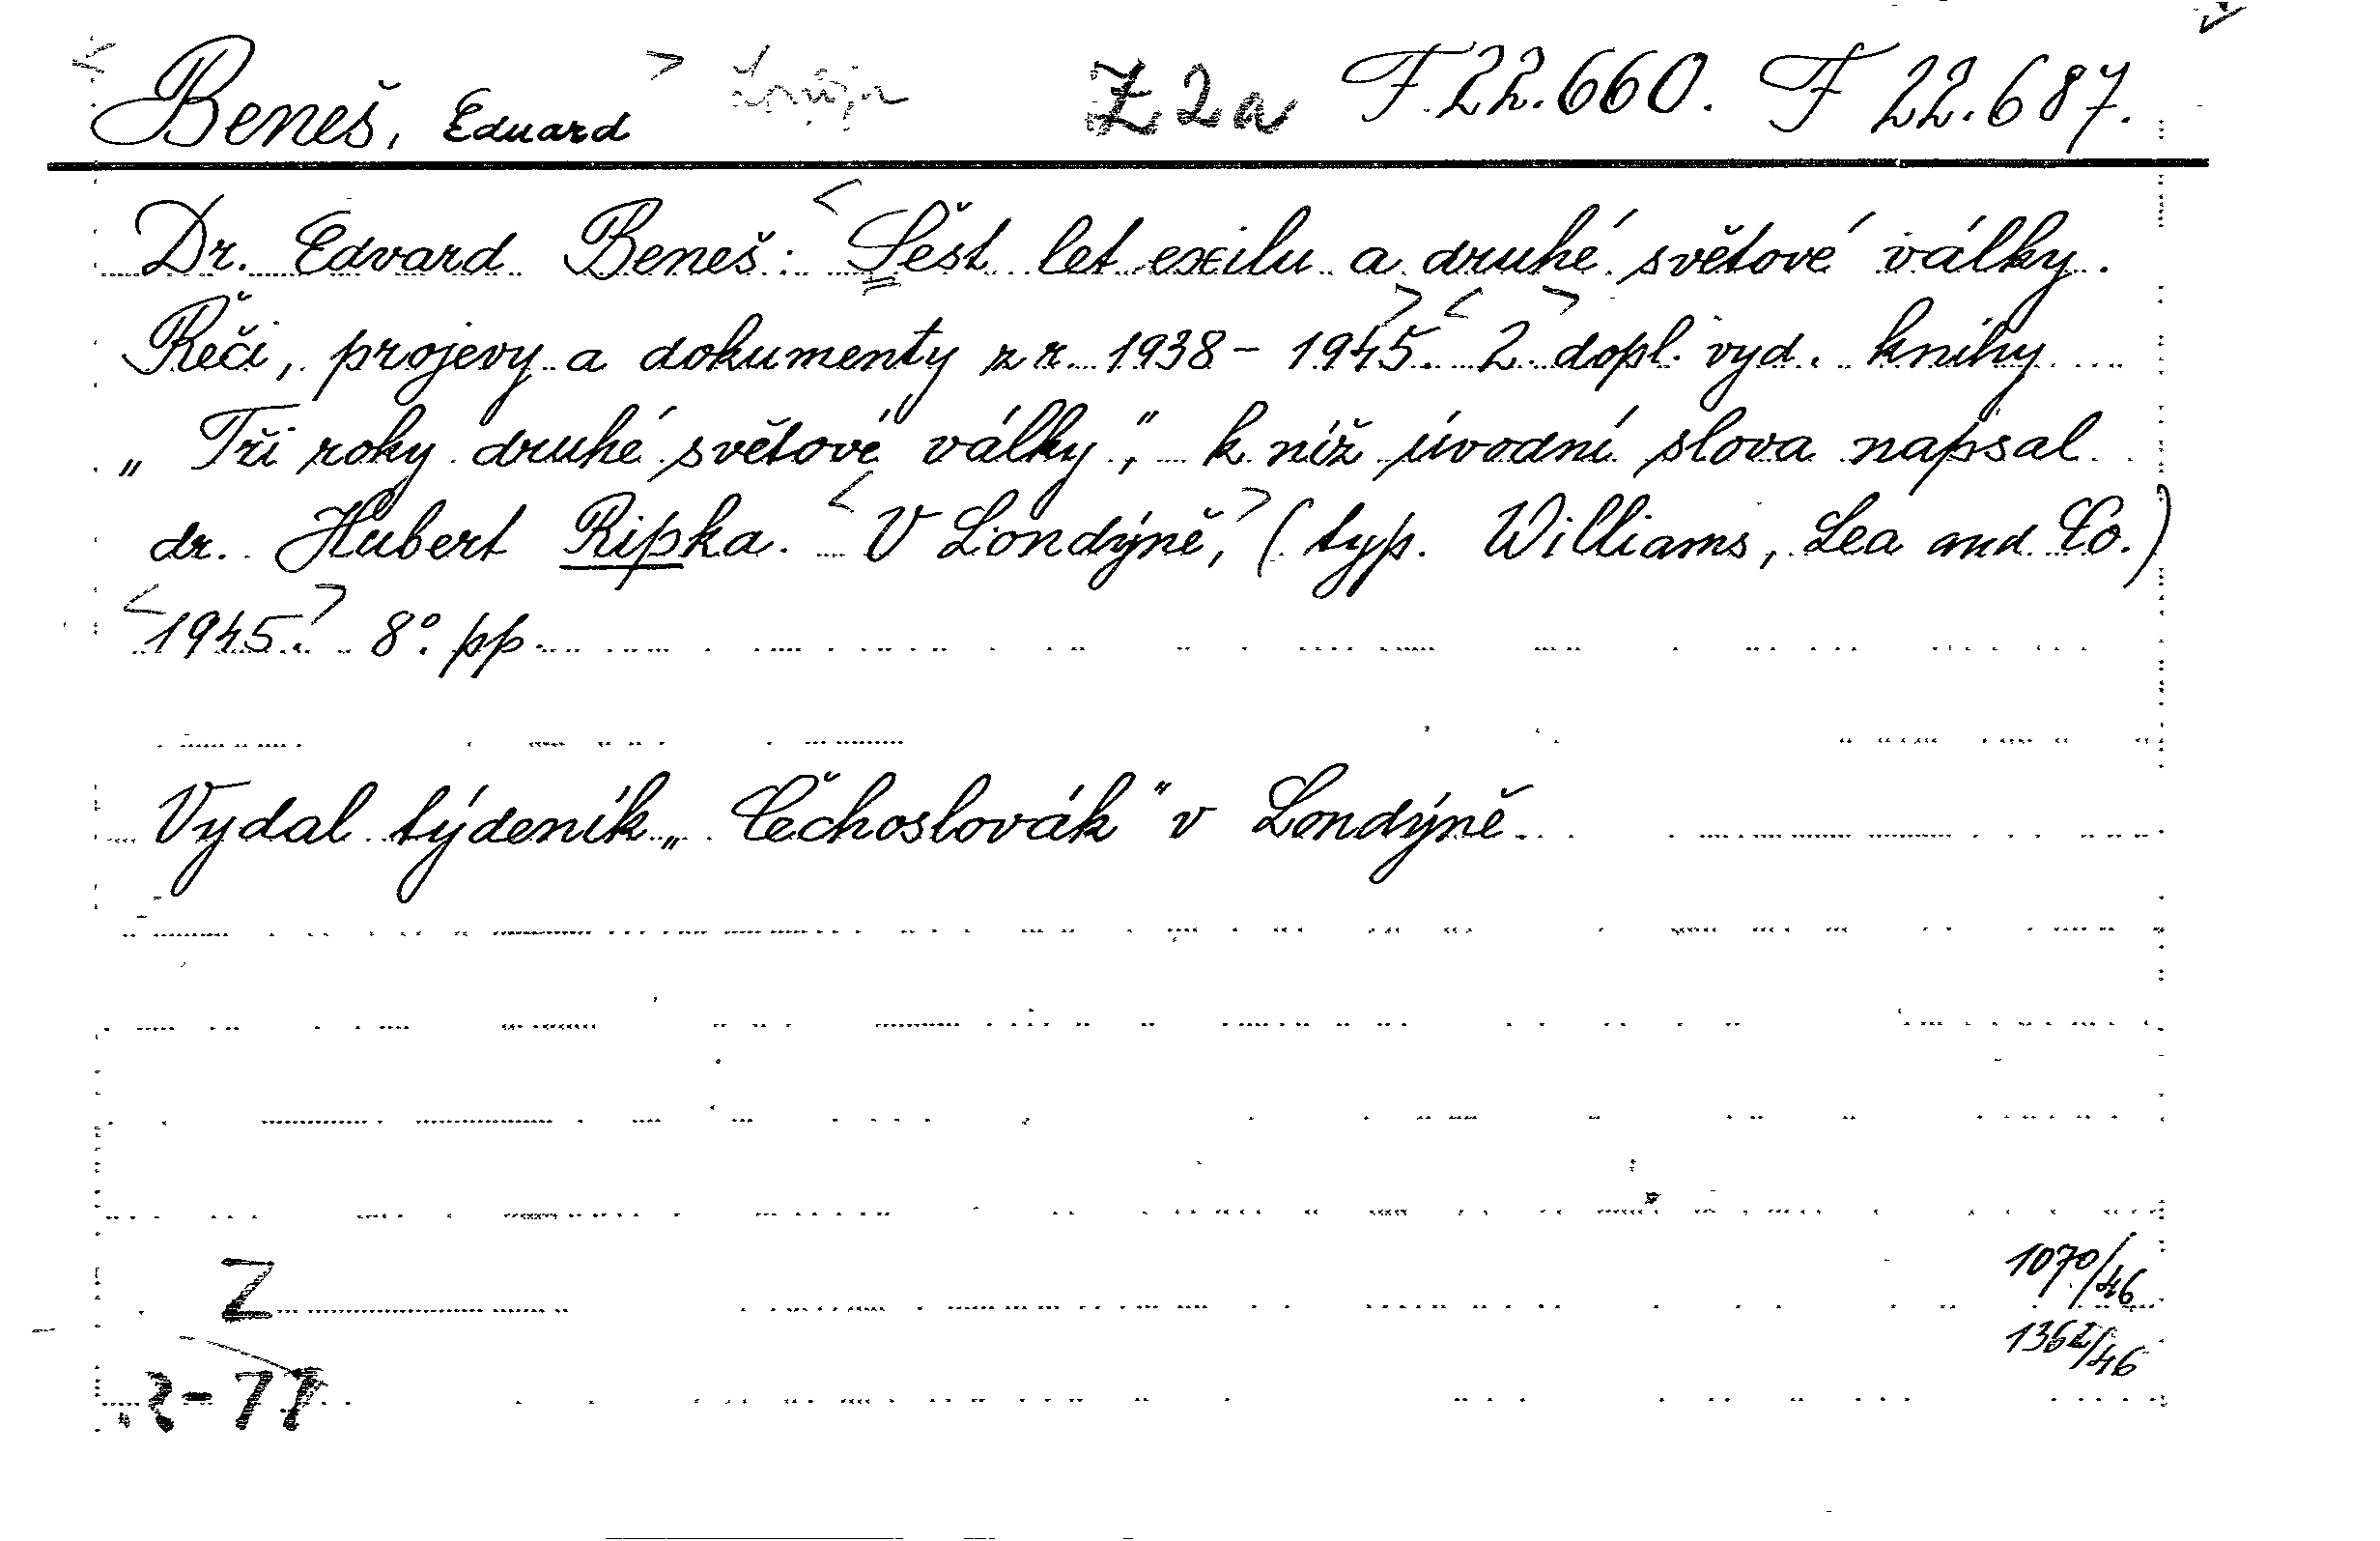 Beneš, Eduard Z 2a F 22.660. F 22.687.
Dr. Edvard Beneš: Šest let exilu a druhé světové války.
Řeči, projevy a dokumenty z r. 1938-1945. 2. dopl. vyd. knihy
„Tři roky druhé světové války", k níž úvodní slova napsal
dr. Hubert Ripka. V Londýně, (typ. Williams, Lea and Co.)
1945. 8°. pp.
Vydal týdeník „Čechoslovák" v Londýně.
Z
1070/46
1362/46